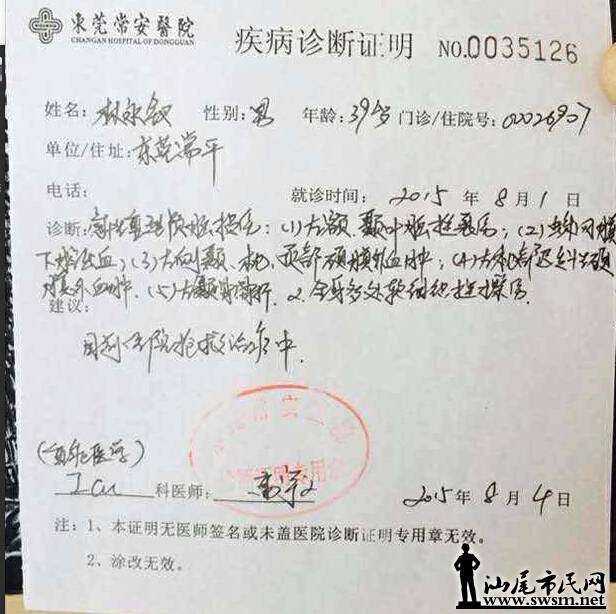 東莞常安醫院
CHANGAN HOSPITAL OF DONGGUAN
疾病诊断证明 NO.0035126
姓名: 林永 性别: 男 年龄: 39岁 门诊/住院号: 00026907
单位/住址: 东莞常平
电话: 就诊时间: 2015 年 8 月 1 日
诊断: 特重型颅脑损伤: (1) 左额、颞叶脑挫裂伤; (2) 蛛网膜
下腔出血; (3) 左侧颞、枕、顶部硬膜外血肿; (4) 左枕部迟发硬
膜外血肿. (5) 左颞骨骨折. 2. 全身多处软组织挫擦伤
建议:
目前住院抢救治疗中.
(重症医学)
ICU 科医师: 2015 年 8 月 4 日
诊断证明专用章
注: 1、本证明无医师签名或未盖医院诊断证明专用章无效。
2、涂改无效。
汕尾市民网
www.swsm.net